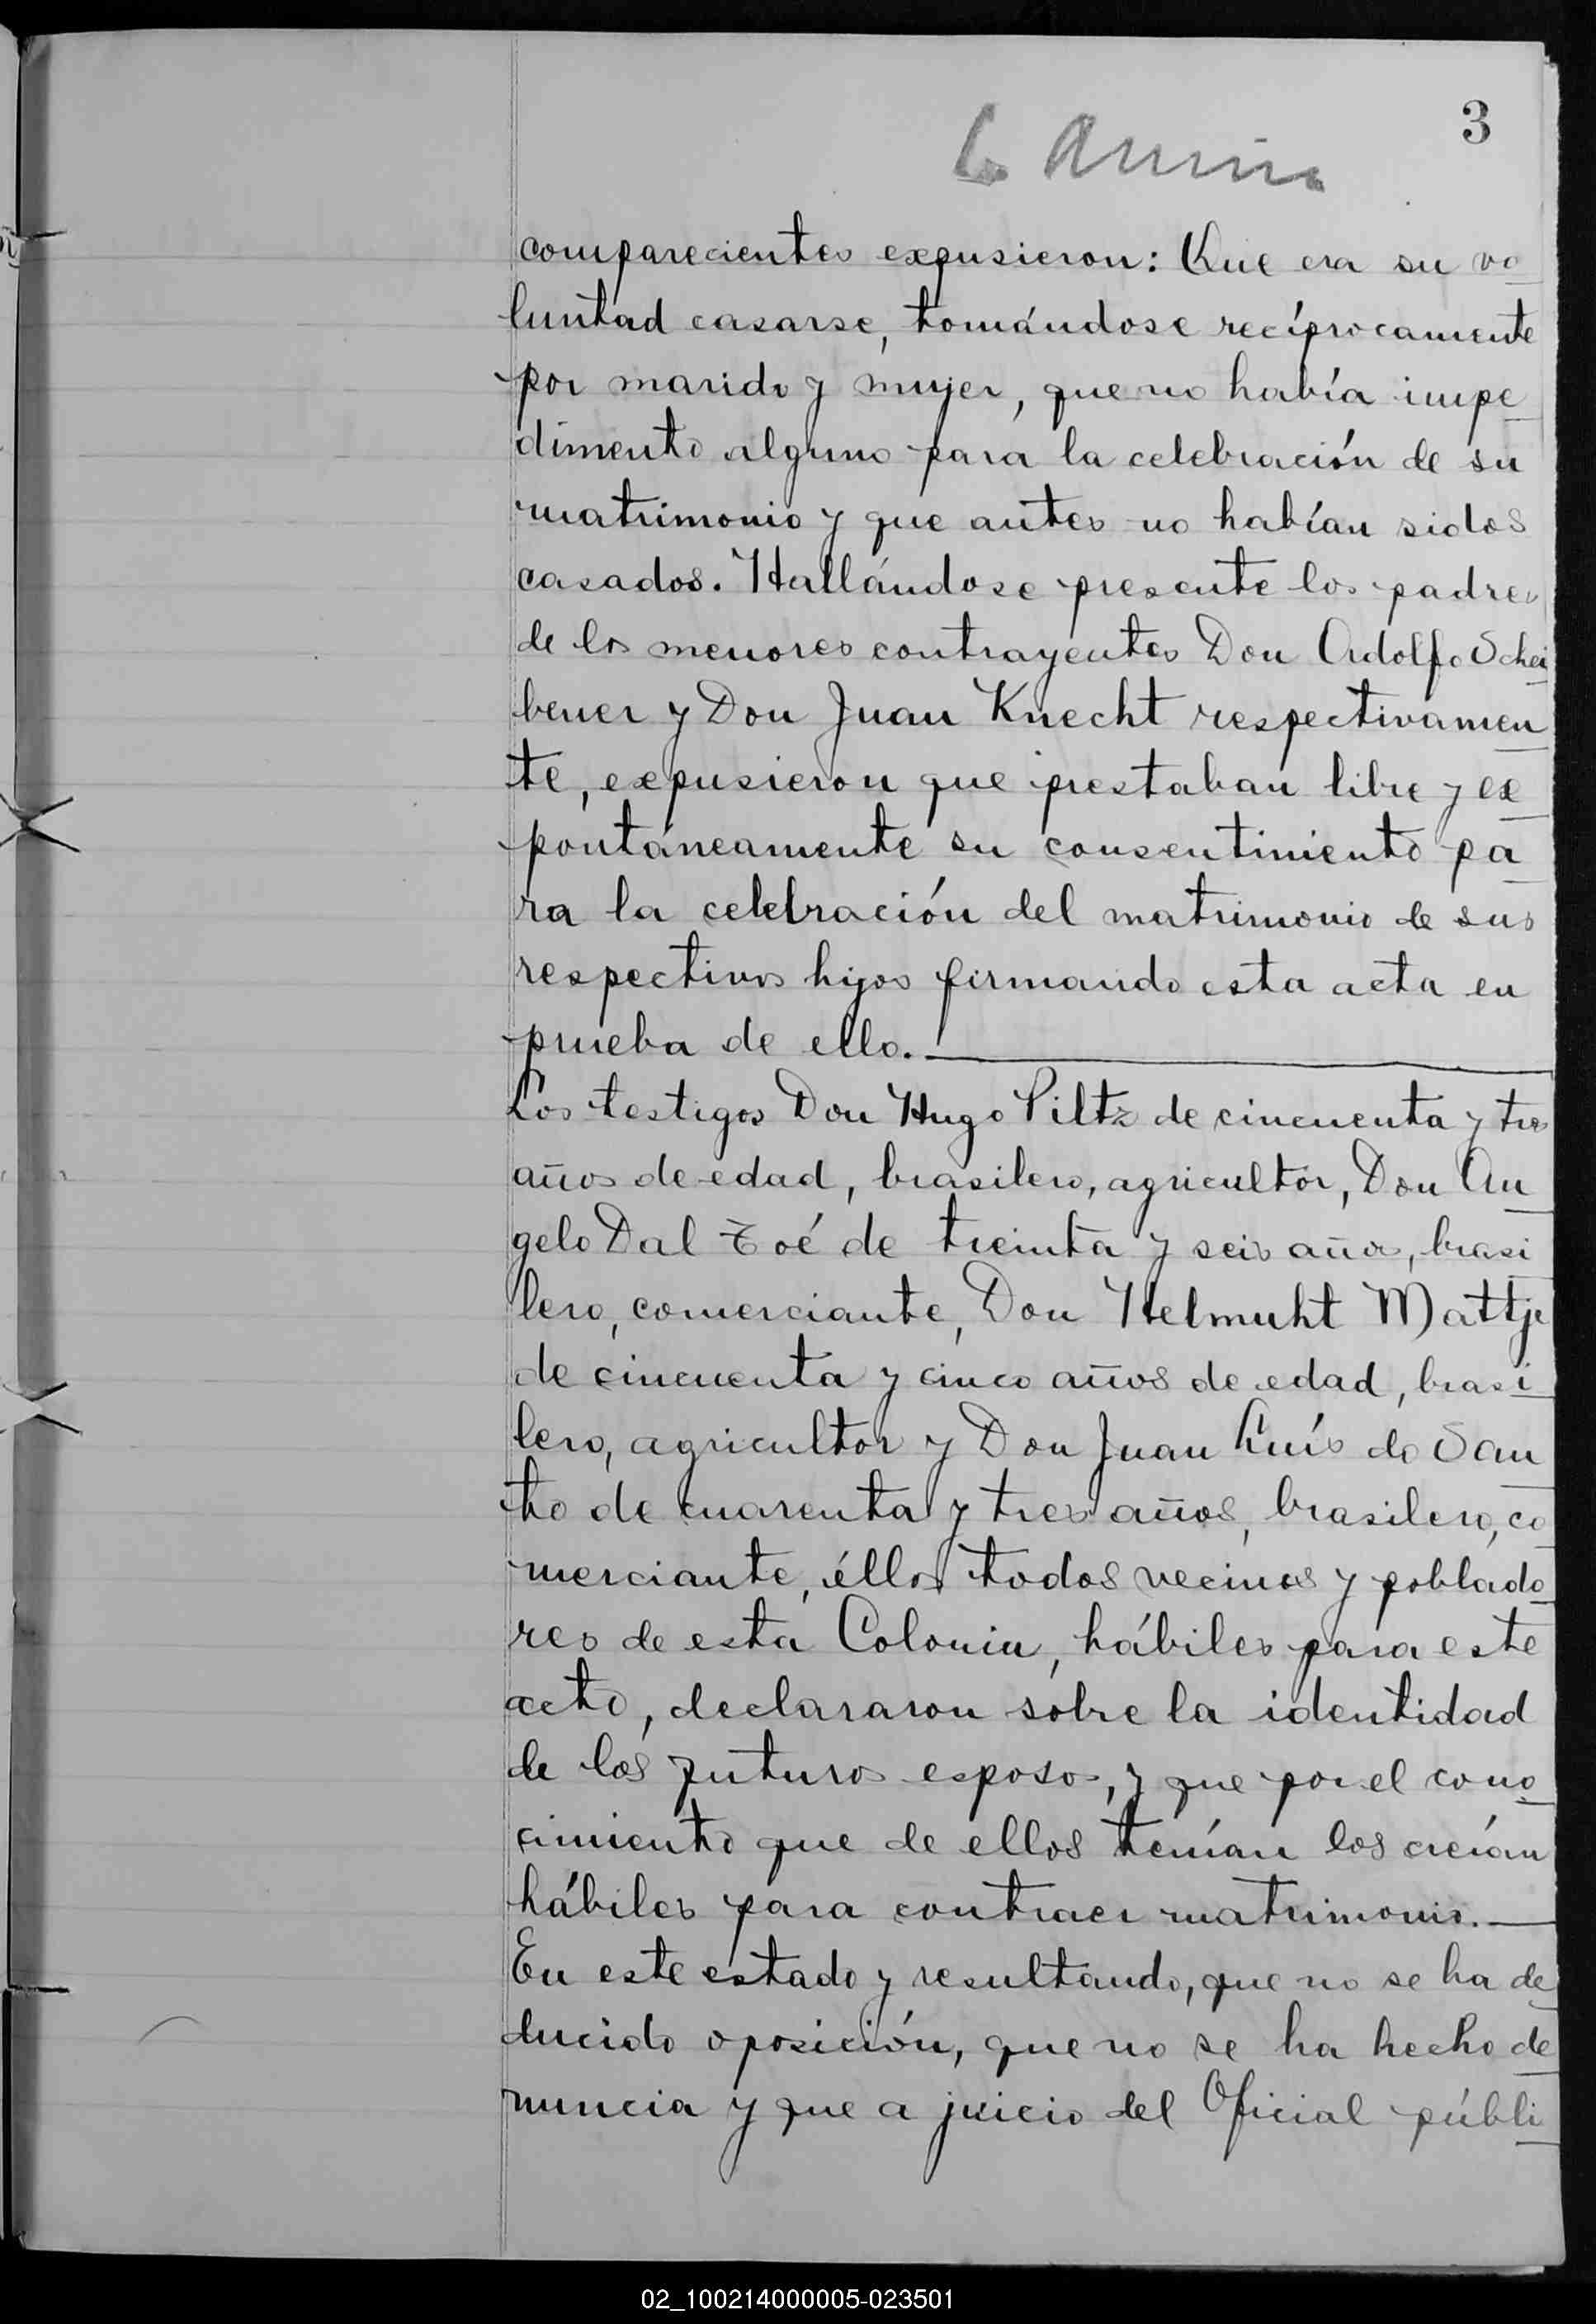 3
comparecientes expusieron: Que era su vo
luntad casarse, tomándose recíprocamente
por marido y mujer, que no había impe
dimento alguno para la celebración de su
matrimonio y que antes no habían sidos
casados. Hallándose presente los padres
de los menores contrayentes Don Adolfo Schei
bener y Don Juan Knecht respectivamen
te, expusieron que prestaban libre y ex
pontáneamente su consentimiento pa
ra la celebración del matrimonio de sus
respectivos hijos firmando esta acta en
prueba de ello.
Los testigos Don Hugo Piltz de cincuenta y tres
años de edad, brasilero, agricultor, Don An
gelo Dal Zoé de treinta y seis años, brasi
lero, comerciante, Don Helmuht Mattje
de cincuenta y cinco años de edad, brasi
lero, agricultor y Don Juan Luís do San
to de cuarenta y tres años, brasilero, co
merciante, éllos todos vecinos y poblado
res de esta Colonia, hábiles para este
acto, declararon sobre la identidad
de los futuros esposos, y que por el cono
cimiento que de ellos tenían los creían
hábiles para contraer matrimonio.
En este estado y resultando, que no se ha de
ducido oposición, que no se ha hecho de
nuncia y que a juicio del Oficial públi
02_100214000005-023501